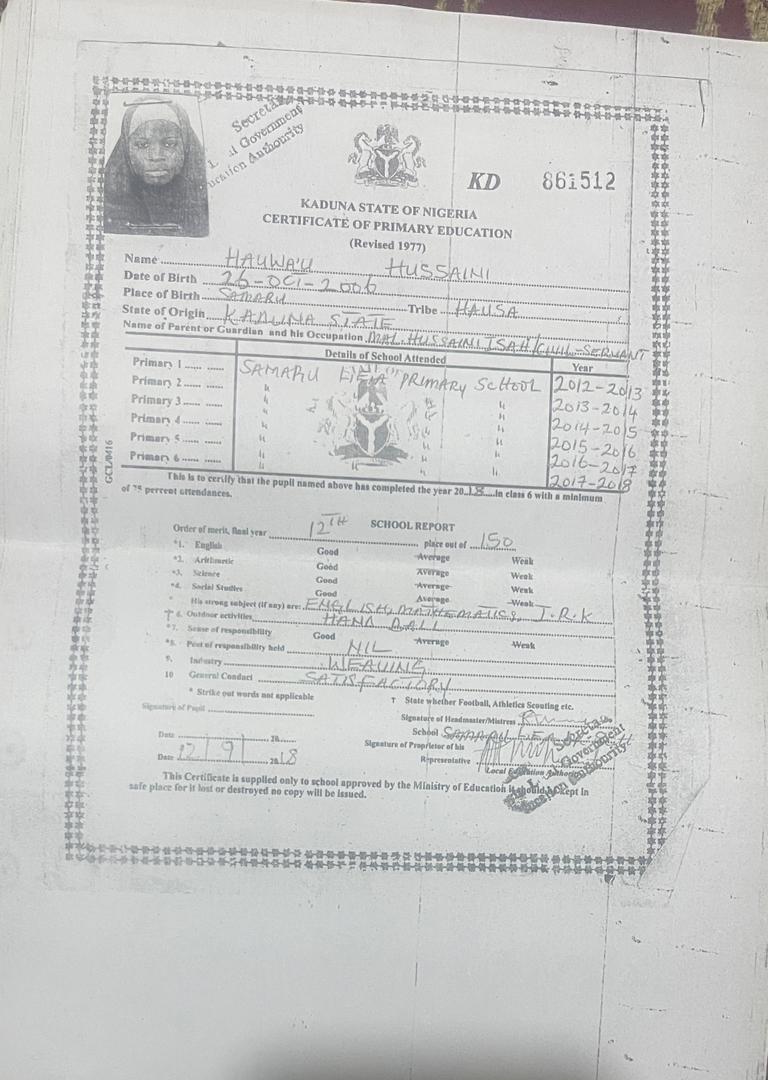 Secretary
Government
Education Authourity
KD 861512
KADUNA STATE OF NIGERIA
CERTIFICATE OF PRIMARY EDUCATION
(Revised 1977)
Name HAUWA'U HUSSAINI
Date of Birth 26-OCT-2006
Place of Birth SAMARU Tribe HAUSA
State of Origin KADUNA STATE
Name of Parent or Guardian and his Occupation MAL. HUSSAINI ISAH/CIVIL-SERVANT
Details of School Attended Year
Primary 1 SAMARU L.E.A PRIMARY SCHOOL 2012-2013
Primary 2 " " " 2013-2014
Primary 3 " " " 2014-2015
Primary 4 " " " 2015-2016
Primary 5 " " " 2016-2017
Primary 6 " " " 2017-2018
GCL/M16
This is to certify that the pupil named above has completed the year 2018 In class 6 with a minimum
of 75 percent attendances.
SCHOOL REPORT
Order of merit, final year 12TH place out of 150
*1. English Good Average Weak
*2. Arithmetic Good Average Weak
*3. Science Good Average Weak
*4. Social Studies Good Average Weak
His strong subject (if any) are: ENGLISH, MATHEMATICS, I.R.K
† 6. Outdoor activities HAND BALL
*7. Sense of responsibility Good Average Weak
*8. Post of responsibility held NIL
9. Industry WEAVING
10 General Conduct SATISFACTORY
* Strike out words not applicable † State whether Football, Athletics Scouting etc.
Signature of Pupil Signature of Headmaster/Mistress
School SAMARU LEA
Date 20 Signature of Proprietor of his
Date 12/9/ 2018 Representative
Local Education Authority
Secretary
Government
Education Authourity
This Certificate is supplied only to school approved by the Ministry of Education it should be kept in
safe place for it lost or destroyed no copy will be issued.